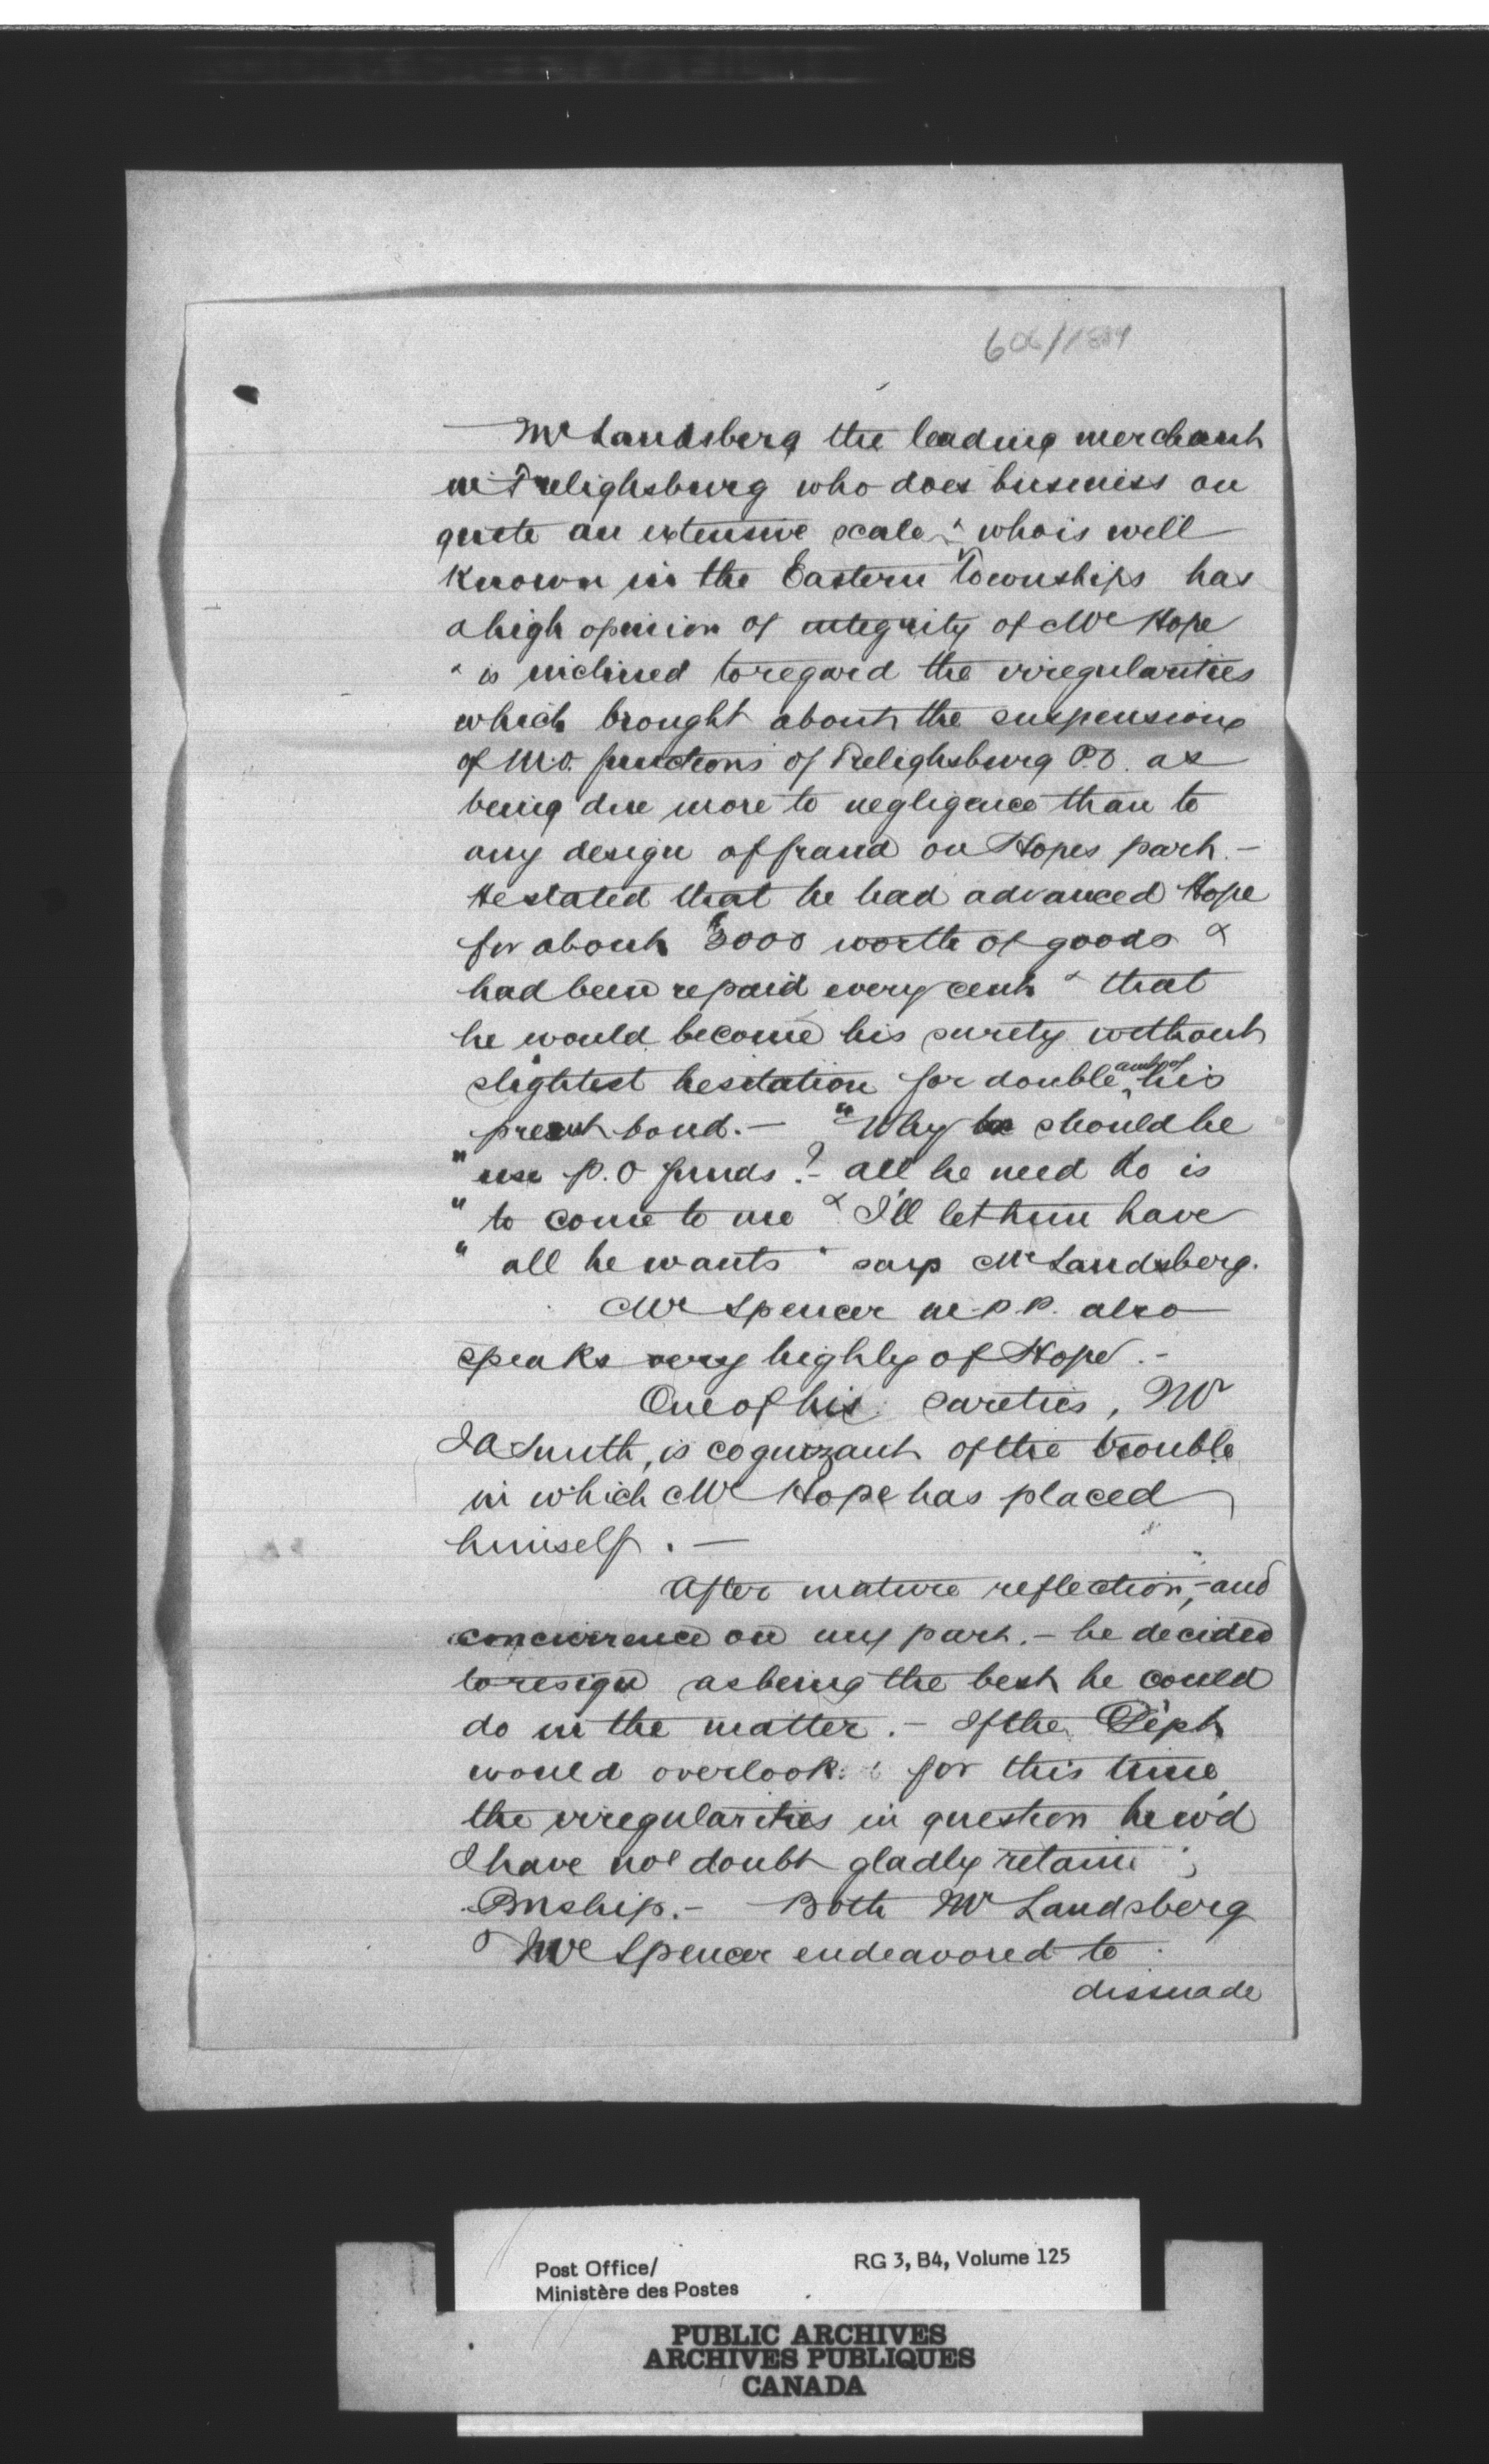 Mr Landsberg the leading merchant
in Frelighsburg who does business on
quite an extensive scale & who is well
known in the Eastern Townships has
a high opinion of integrity of Mr Hope
& is inclined to regard the irregularities
which brought about the suspensions
of M.O. functions of Frelighsburg P.O. as
being due more to negligence than to
any design of fraud on Hopes part. -
He stated that he had advanced Hope
for about $3000 worth of goods &
had been repaid every cent & that
he would become his surety without
slightest hesitation for double amt of his
present bond. - "Why should he
" use P.O funds? - all he need do is
" to come to me & I'll let him have
" all he wants" says Mr Landsberg.
Mr Spencer M.P.P. also
speaks very highly of Hope. -
One of his sureties, Mr
J A Smith, is cognizant of the trouble
in which Mr Hope has placed
himself. -
After mature reflection, - and
concurrence on my part. - he decided
to resign as being the best he could
do in the matter. - If the Dept
would overlook for this time
the irregularities in question he w'd
I have no doubt gladly retain
Pmship. - Both Mr Landsberg
& Mr Spencer endeavored to
dissuade
Post Office/
Ministère des Postes
RG 3, B4, Volume 125
PUBLIC ARCHIVES
ARCHIVES PUBLIQUES
CANADA